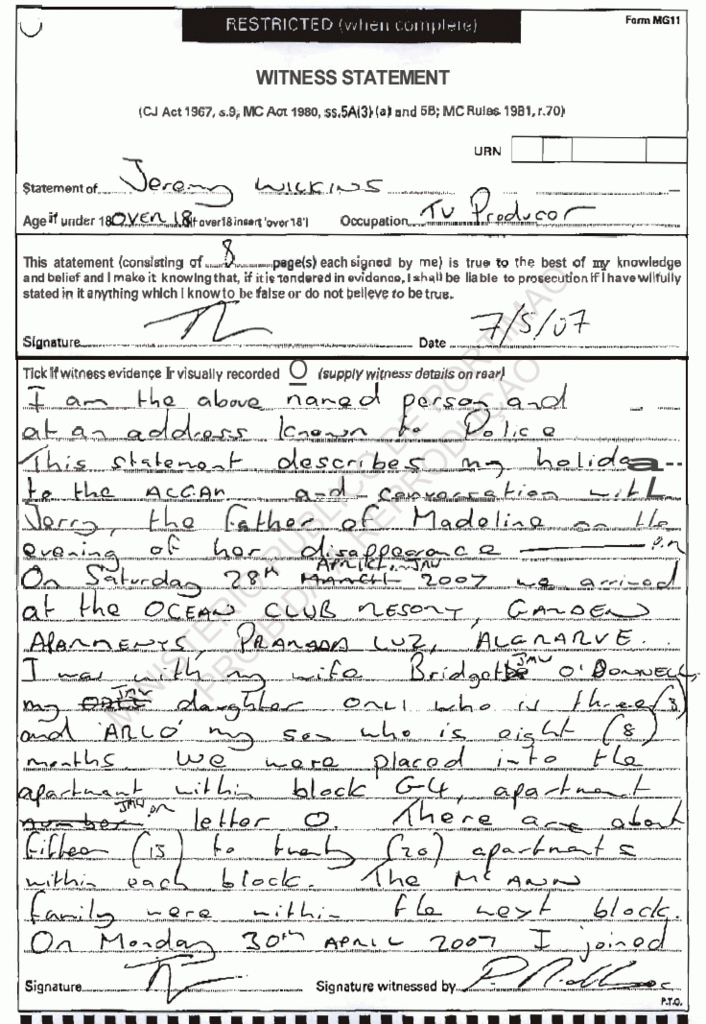 RESTRICTED (when complete)
Form MG11
WITNESS STATEMENT
(CJ Act 1967, s.9, MC Act 1980, ss.5A(3)(a) and 5B; MC Rules 1981, r.70)
URN
Statement of Jeremy WILKINS
Age if under 18 OVER 18 (if over 18 insert 'over 18') Occupation TV Producor
This statement (consisting of 8 page(s) each signed by me) is true to the best of my knowledge
and belief and I make it knowing that, if it is tendered in evidence, I shall be liable to prosecution if I have wilfully
stated in it anything which I know to be false or do not believe to be true.
Signature Date 7/5/07
Tick if witness evidence is visually recorded (supply witness details on rear)
I am the above named person and
at an address known to Police
This statement describes my holida
to the and conversation with
Jerry, the Father of Madeline on the
evening of her disappearance
APRIL
On Saturday 28th MARCH 2007 we arrived
at the OCEAN CLUB RESORT, GARDEN
APARMENTS, LUZ, ALGRARVE.
I was with my wife Bridget O'DONNELL,
my daughter who is three (3)
and 'ARLO' my son who is eight (8)
months. We were placed into the
apartment within block G4, apartment
number letter O. There are about
fifteen (15) to twenty (20) apartments
within each block. The McANN
family were within the next block.
On Monday 30th APRIL 2007 I joined
Signature Signature witnessed by
P.T.O.
MINISTERIO PUBLICO DE PORTIMAO
PROIBIDA A REPRODUÇÃO